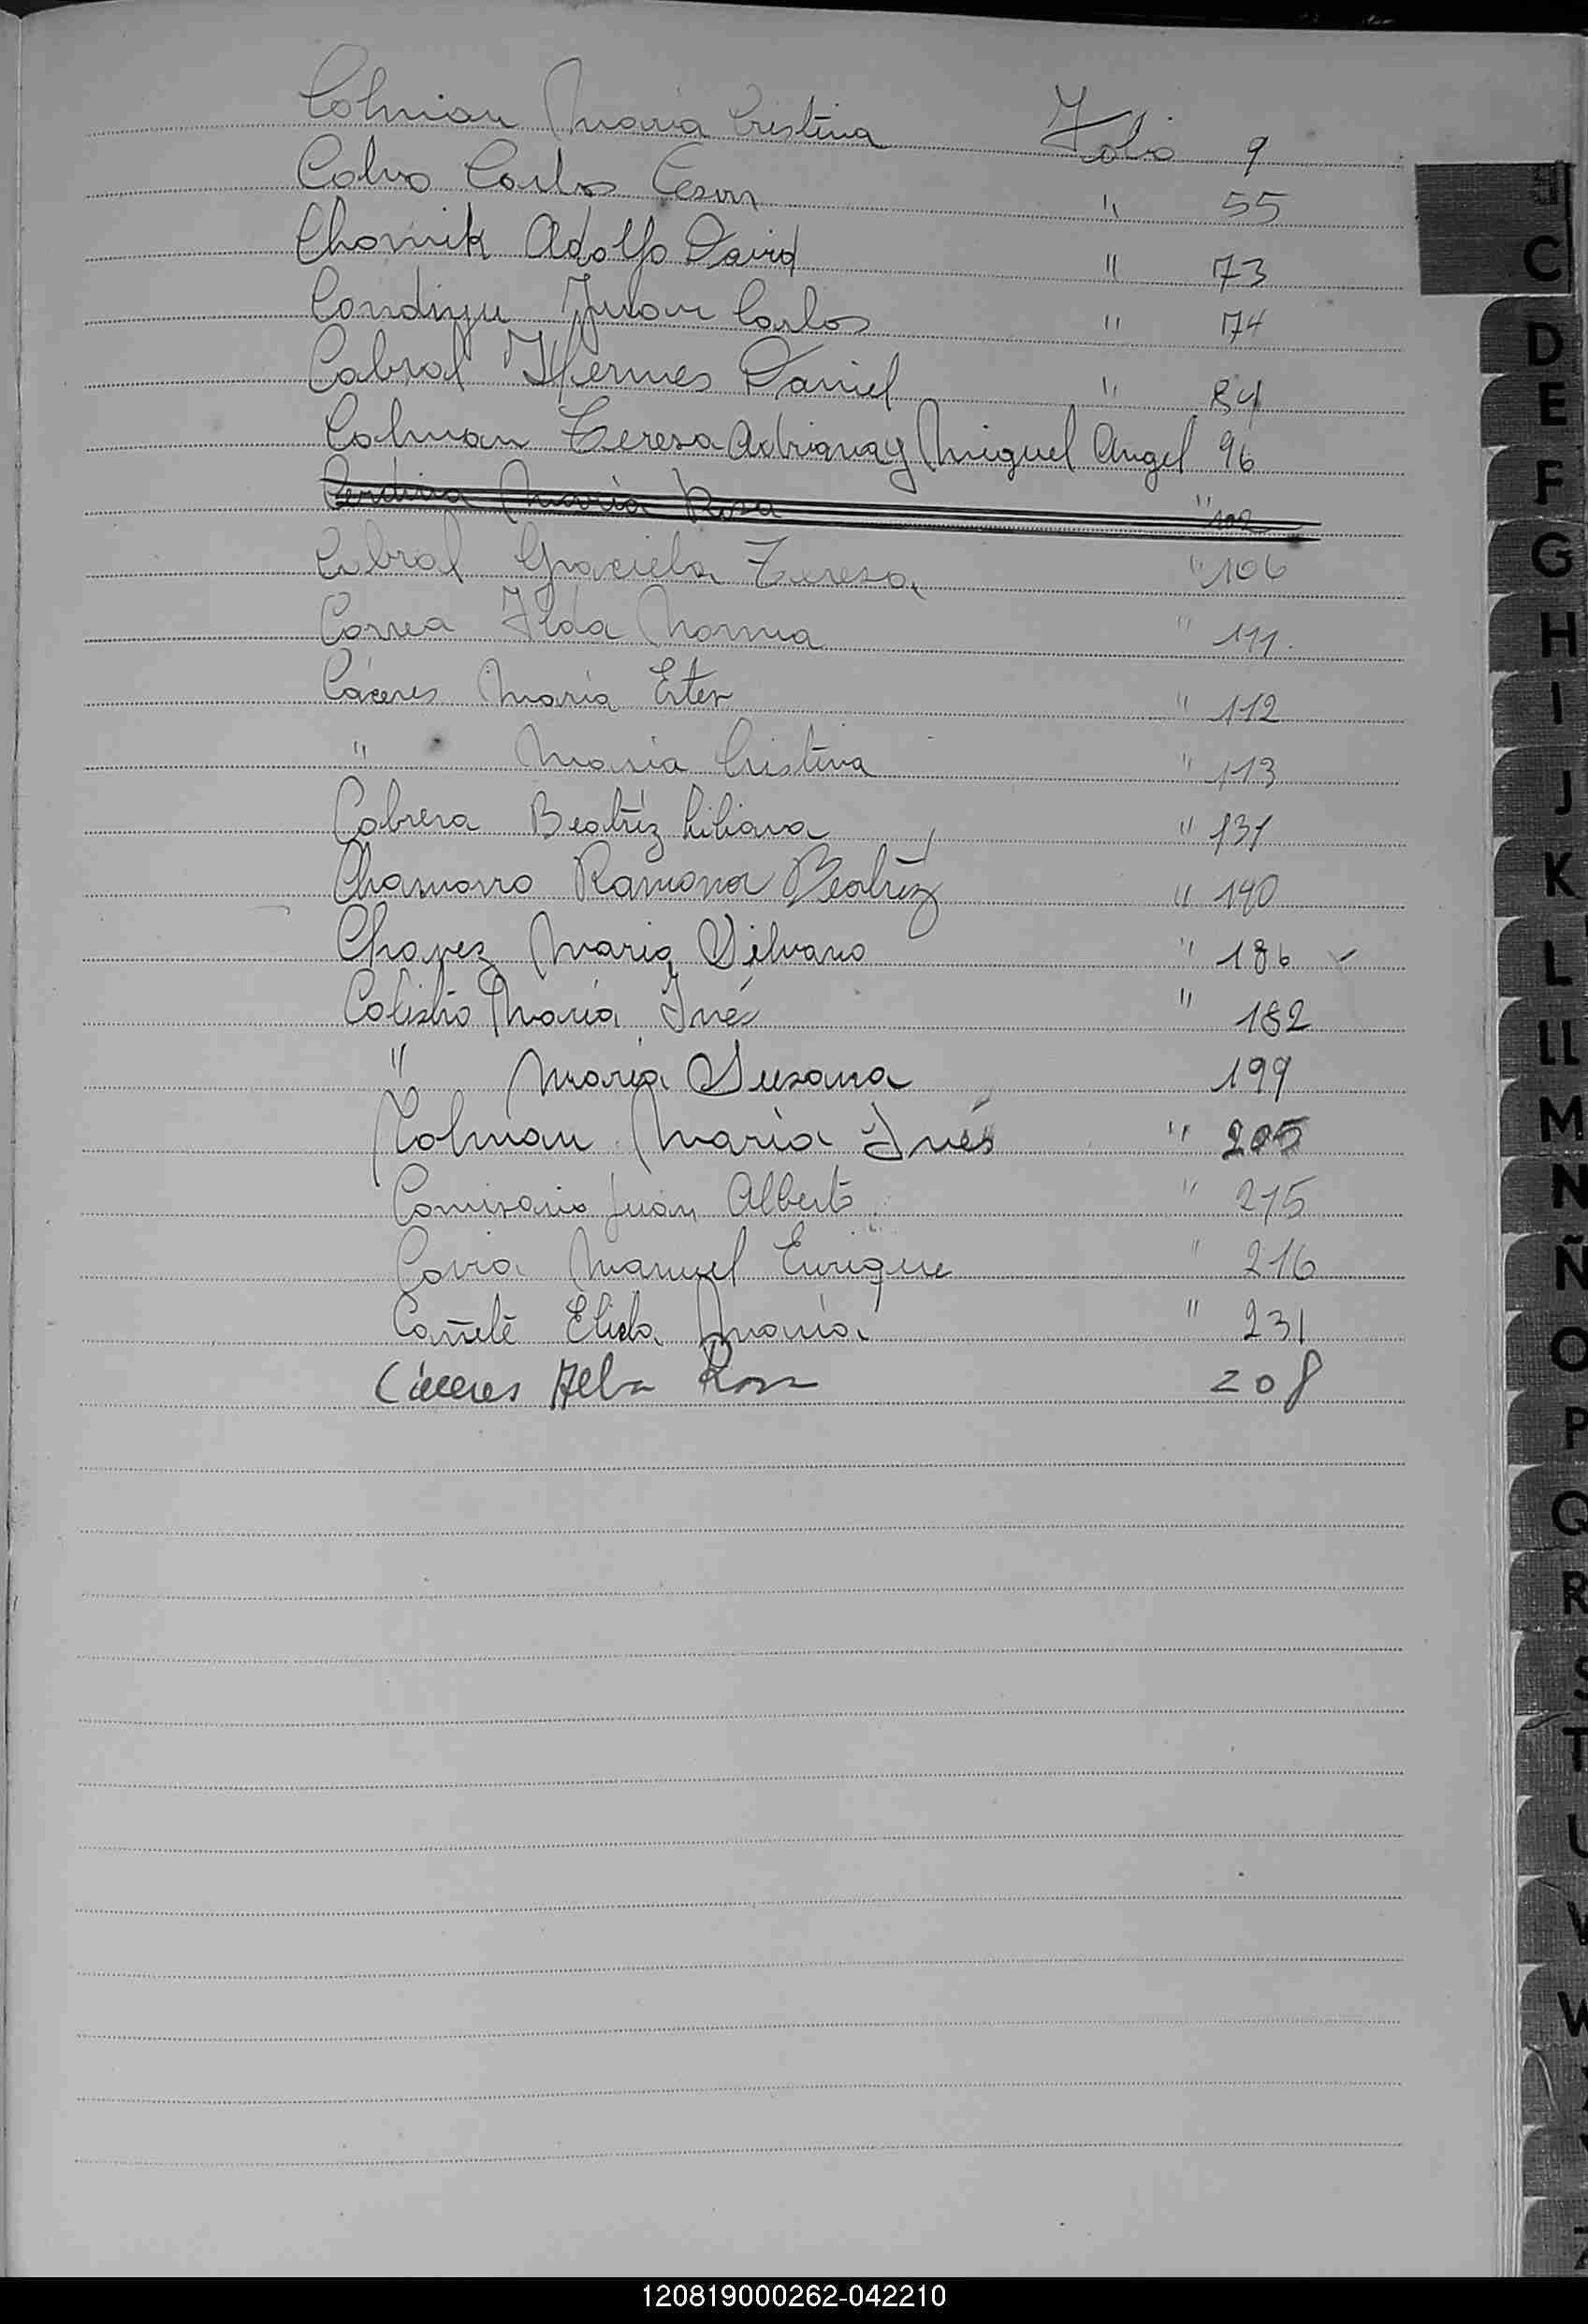 Colman María Cristina Folio 9
Calvo Carlos Cesar " 55
Chornik Adolfo David " 73
Juan Carlos " 74
Cabral Hermes Daniel " 84
Colman Teresa Adriana y Miguel Angel 96
María Rosa " 102
Cabral Graciela Teresa " 106
Correa Ilda Norma " 111.
Cáceres María Ester " 112
" María Cristina " 113
Cabrera Beatríz Liliana " 131
Chamorro Ramona Beatríz " 140
Chavez Mario Silvano " 186 ✓
María Inés " 182
" María Susana 199
Colman María Inés " 205
Comisario Juan Alberto " 215
Manuel Enrique " 216
Cañete Elida María " 231
Cáceres Alba Rosa 208
C
D
E
F
G
H
I
J
K
L
LL
M
N
Ñ
O
P
Q
R
S
T
U
V
W
120819000262-042210